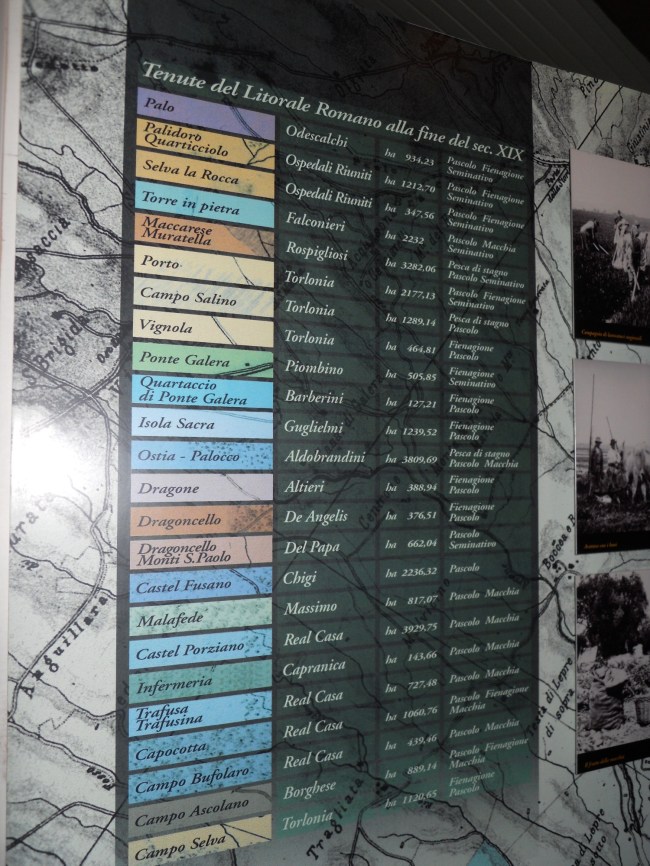 Tenute del Litorale Romano alla fine del sec. XIX
Palo Odescalchi ha 934,23 Pascolo Fienagione
Seminativo
Palidoro
Quarticciolo Ospedali Riuniti ha 1212,70 Pascolo Fienagione
Seminativo
Selva la Rocca Ospedali Riuniti ha 347,56 Pascolo Fienagione
Seminativo
Torre in pietra Falconieri ha 2232 Pascolo Macchia
Seminativo
Maccarese
Muratella Rospigliosi ha 3282,06 Pesca di stagno
Pascolo Seminativo
Porto Torlonia ha 2177,13 Pascolo Fienagione
Seminativo
Campo Salino Torlonia ha 1289,14 Pesca di stagno
Pascolo
Vignola Torlonia ha 464,81 Fienagione
Pascolo
Ponte Galera Piombino ha 505,85 Fienagione
Seminativo
Quartaccio
di Ponte Galera Barberini ha 127,21 Fienagione
Pascolo
Isola Sacra Guglielmi ha 1239,52 Fienagione
Pascolo
Ostia - Palocco Aldobrandini ha 3809,69 Pesca di stagno
Pascolo Macchia
Dragone Altieri ha 388,94 Fienagione
Pascolo
Dragoncello De Angelis ha 376,51 Fienagione
Pascolo
Dragoncello
Monti S.Paolo Del Papa ha 662,04 Pascolo
Seminativo
Castel Fusano Chigi ha 2236,32 Pascolo
Malafede Massimo ha 817,07 Pascolo Macchia
Castel Porziano Real Casa ha 3929,75 Pascolo Macchia
Infermeria Capranica ha 143,66 Pascolo Macchia
Trafusa
Trafusina Real Casa ha 727,48 Pascolo Macchia
Capocotta Real Casa ha 1060,76 Pascolo Fienagione
Macchia
Campo Bufolaro Real Casa ha 439,46 Pascolo Macchia
Campo Ascolano Borghese ha 889,14 Pascolo Fienagione
Macchia
Campo Selva Torlonia ha 1120,65 Fienagione
Pascolo
Anguillara
Tragliata